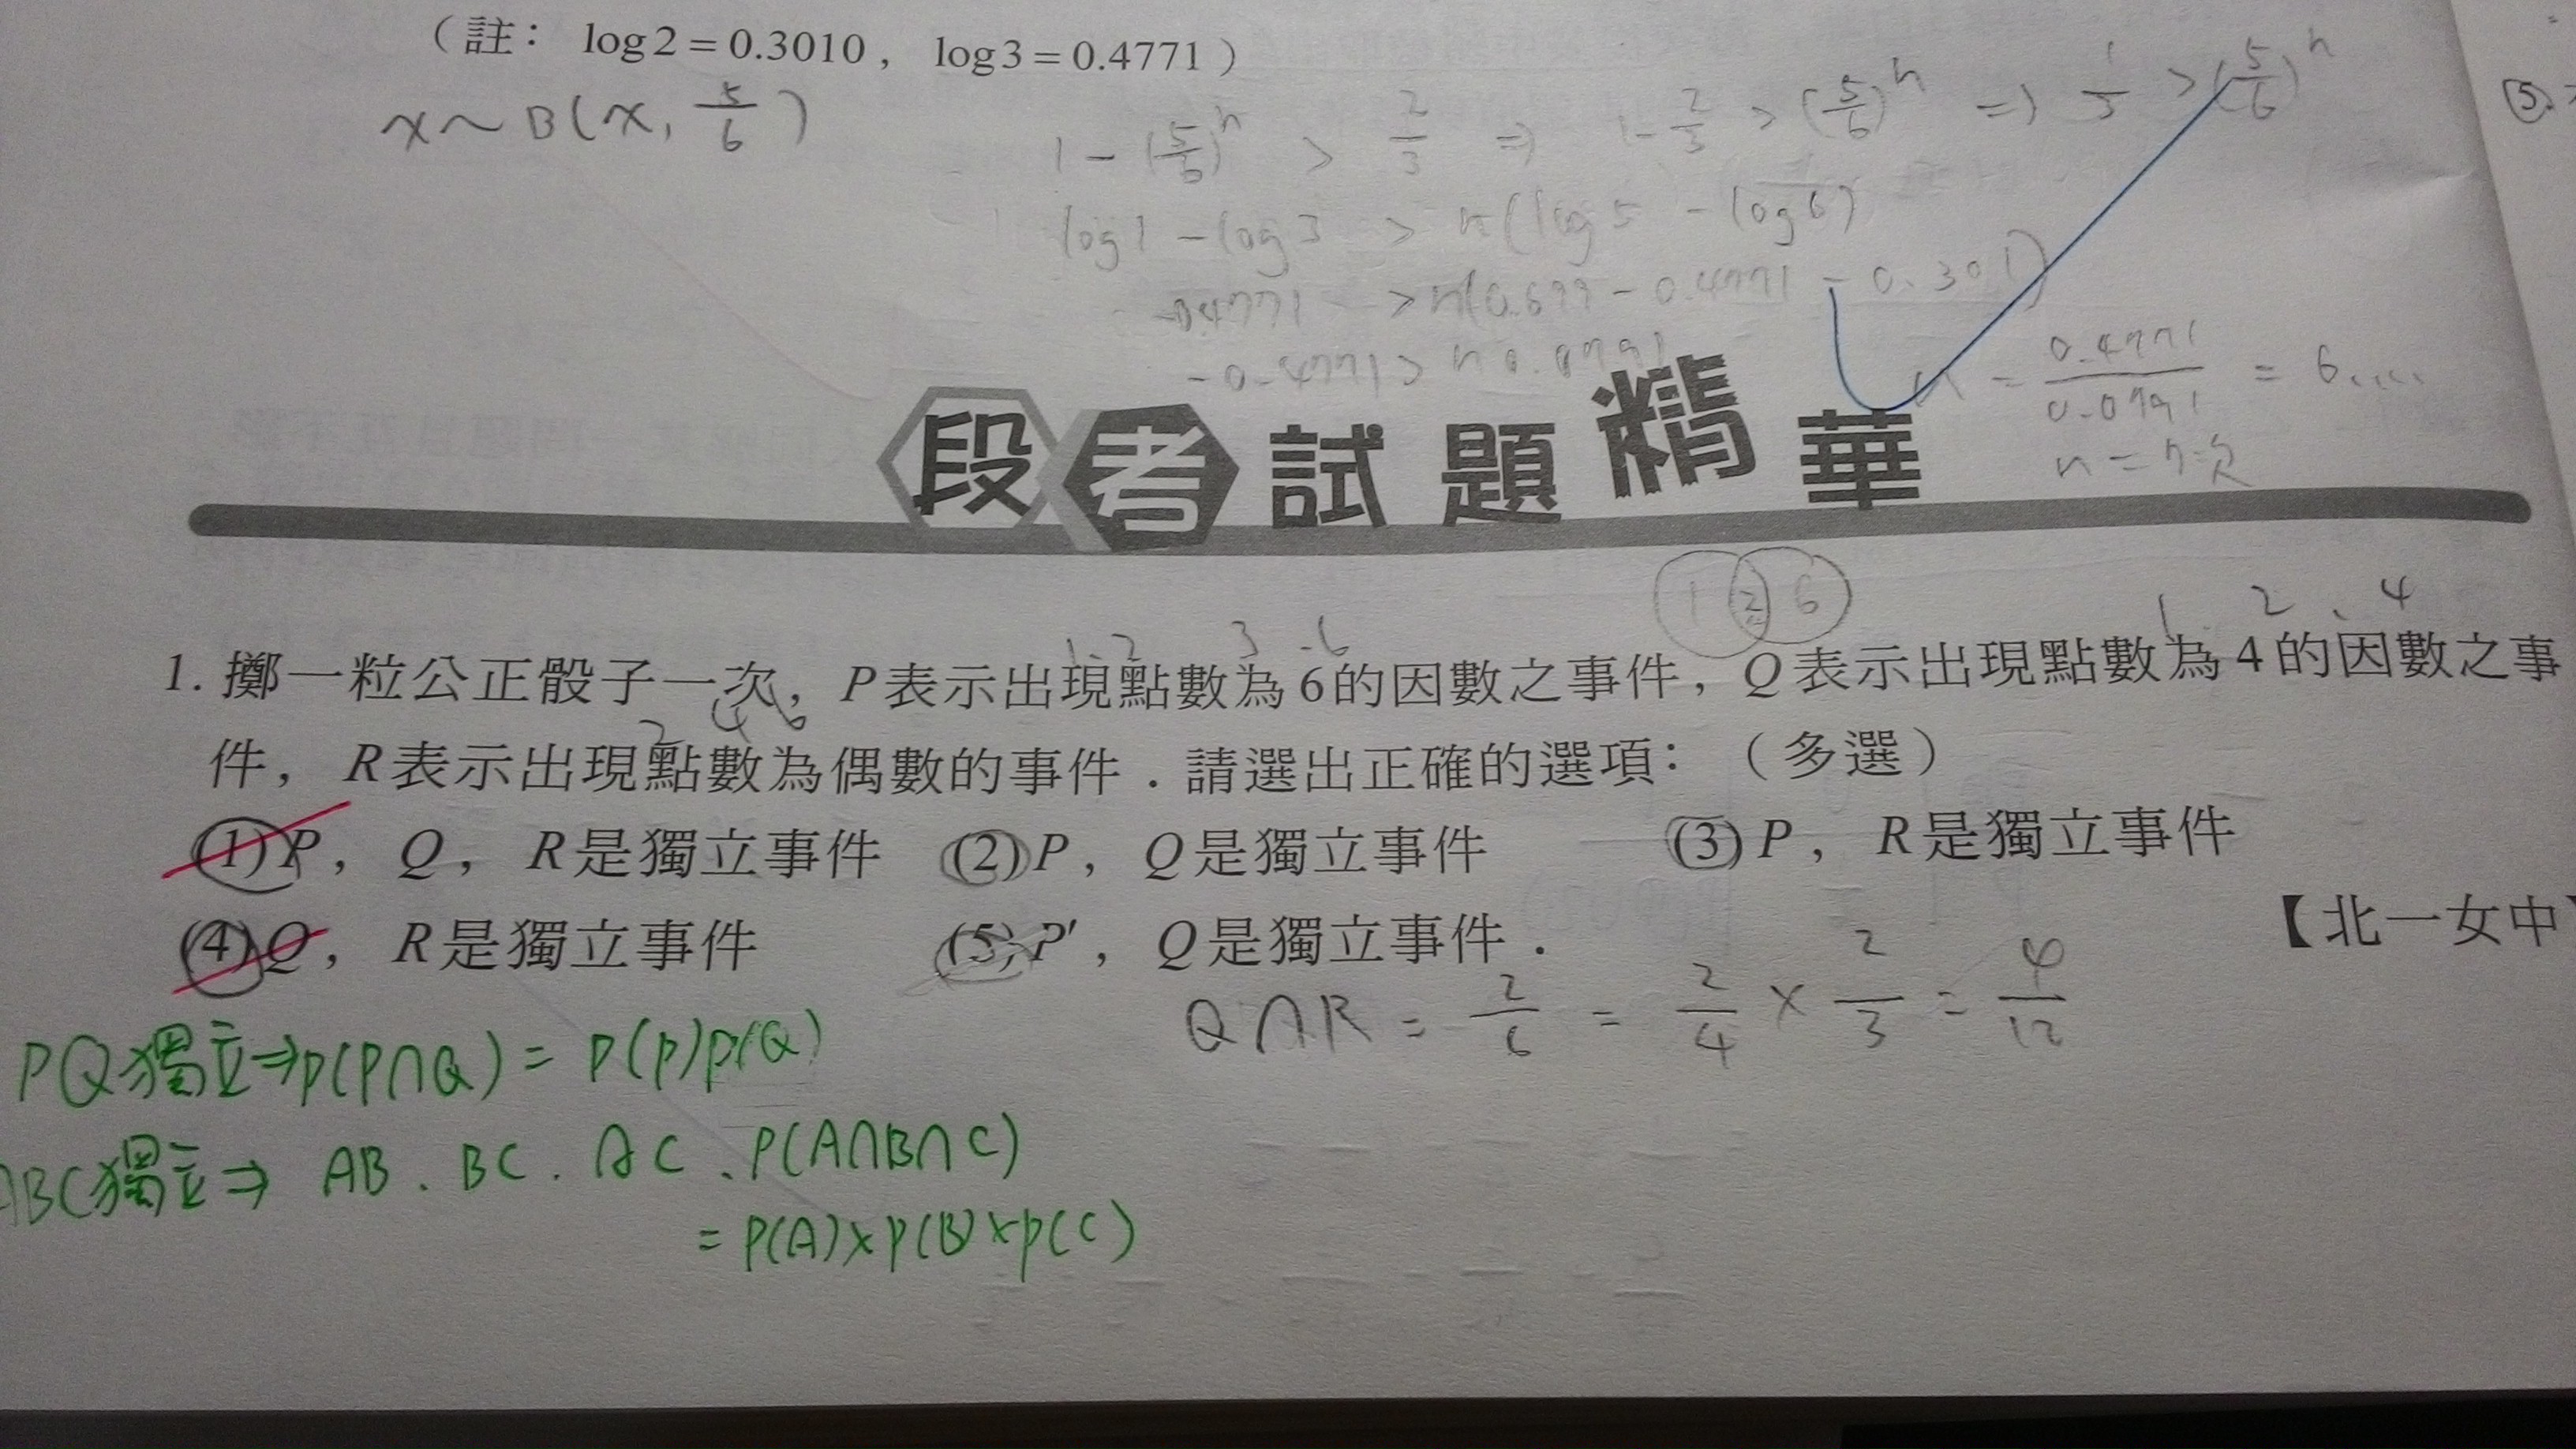 （註： log2＝0.3010， log3＝0.4771）
x～B(x, 5/6)
1－(5/6)^n ＞ 2/3 ⇒ 1－2/3 ＞ (5/6)^n ⇒ 1/3 ＞(5/6)^n
log1－log3 ＞ n(log5－log6)
-0.4771 ＞n(0.699－0.4771－0.301)
-0.4771＞ n 0.0791
n = 0.4771/0.0791 = 6....
n＝7次
⑤
段考試題精華
1 2 6
1. 2 3 .6
1. 2 、 4
1. 擲一粒公正骰子一次，P表示出現點數為6的因數之事件，Q表示出現點數為4的因數之事
2 4 6
件，R表示出現點數為偶數的事件．請選出正確的選項：（多選）
(1)P，Q，R是獨立事件 (2)P，Q是獨立事件 (3)P，R是獨立事件
(4)Q，R是獨立事件 (5)P′，Q是獨立事件．
【北一女中】
Q∩R = 2/6 = 2/4 × 2/3 = 4/12
PQ獨立⇒p(P∩Q)＝p(p)p(Q)
ABC獨立⇒ AB．BC．AC、P(A∩B∩C)
=P(A)×p(B)×p(C)